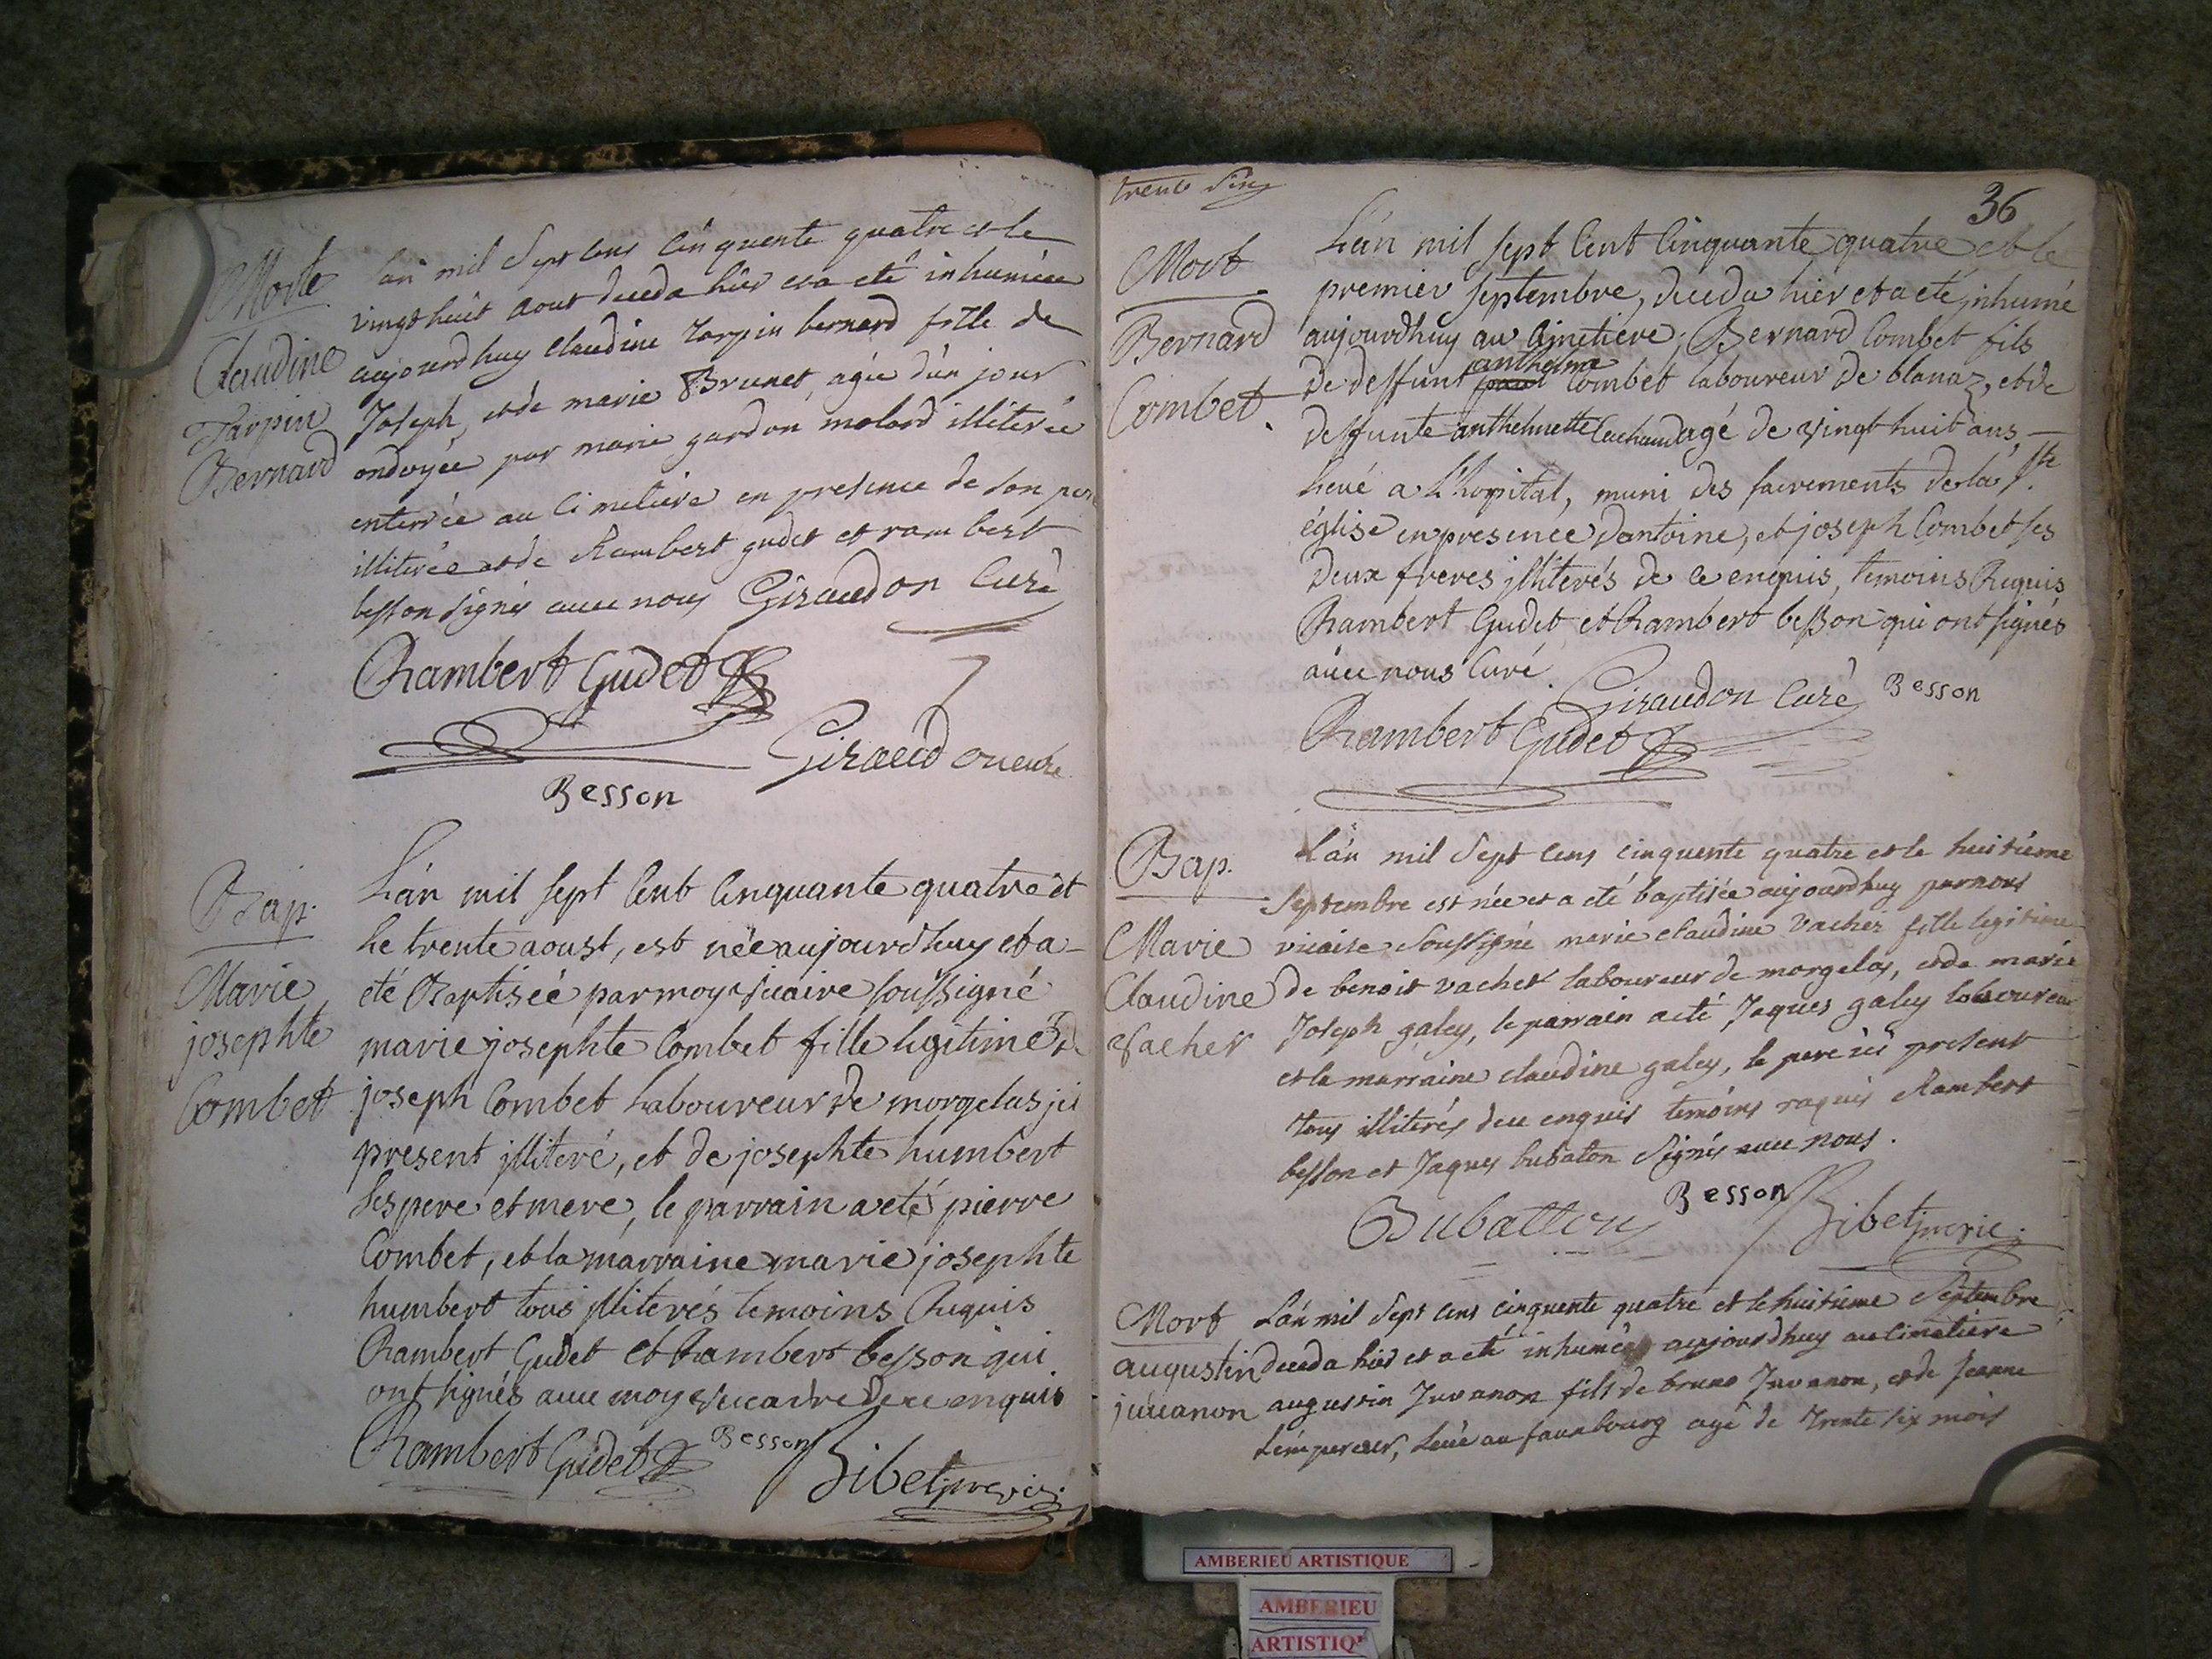 Morte
Claudine
Tarpin
Bernard
Lan mil Sept cens cinquente quatre et le
vingt huit aout deceda hier et a eté inhumée
aujourdhuy claudine tarpin bernard fille de
Joseph, et de marie Brunet, agée d'un jour
ondoyée par marie gardon molard illiterée
enterrée au cimetiere en presence de son pere
illiterée et de Rambert gudet et rambert
besson signés avec nous Giraudon Curé
Rambert Gudet
Giraudon curé
Besson
Bap.
Marie
josephte
Combet
Lán mil sept Cent Cinquante quatre et
Le trente aoust, est née aujourdhuy et a
eté Baptiseé par moy vicaire soussigné
marie josephte Combet fille legitime de
joseph Combet Laboureur de morgelas jci
present jlliteré, et de josephte humbert
Ses pere et mere, le parrain a eté pierre
Combet, et la marraine marie josephte
humbert tous jlliterés temoins Requis
Rambert Gudet et Rambert besson qui
ont signés avec moy vicaire de ce enquis
Rambert Gudet Besson Bibet
trente six
36
Mort
Bernard
Combet.
Lán mil sept Cent Cinquante quatre et le
premier septembre, deceda hier et a eté jnhumé
aujourdhuy au Cimetiere, Bernard Combet fils
anthelme
de deffunt Combet laboureur de blanaz, et de
deffunte anthelmette agé de vingt huit ans,
Levé a L'hopital, muni des sacrements de la Ste
église en presence dantoine, et joseph Combet ses
Deux freres jlliterés de ce enquis, temoins Requis
Rambert Gudet et Rambert besson qui ont signés
avec nous Curé.
Giraudon Curé Besson
Rambert Gudet
Bap.
Marie
Claudine
vacher
Lán mil Sept cens cinquente quatre et le huitiéme
Septembre est née et a eté baptisée aujourdhuy par nous
vicaire Soussigné marie claudine vacher fille legitime
de benoit vacher laboureur de morgelas, et de marie
Joseph galey, le parrain a eté Jaques galey laboureur
et la marraine claudine galey, le pere ici present
tous illiterés de ce enquis temoins requis Rambert
besson et Jaques bubaton Signés avec nous.
Bubatton Besson Bibet
Mort
augustin
juvanon
Lán mil Sept cens cinquente quatre et le huitieme Septembre
deceda hier et a eté inhumée aujourdhuy au cimetiere
augustin Juvanon fils de bruno Juvanon, et de Jeanne
Lémpereur, Levé au fauxbourg agé de trente six mois
AMBERIEU ARTISTIQUE
AMBERIEU
ARTISTIQ